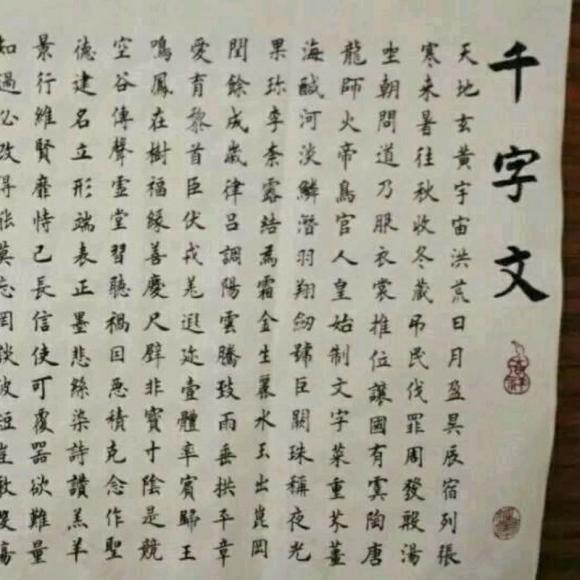 千字文
天地玄黃宇宙洪荒日月盈昃辰宿列張
寒来暑往秋收冬藏吊民伐罪周發殷湯
坐朝問道乃服衣裳推位讓國有虞陶唐
龍師火帝鳥官人皇始制文字菜重芥薑
海鹹河淡鱗潛羽翔劍號巨闕珠稱夜光
果珍李柰露結為霜金生麗水玉出崑岡
閏餘成歲律呂調陽雲騰致雨垂拱平章
愛育黎首臣伏戎羌遐迩壹體率賓歸王
鳴鳳在樹福緣善慶尺璧非寶寸陰是競
空谷傳聲虛堂習聽禍因惡積克念作聖
德建名立形端表正墨悲絲染詩讚羔羊
景行維賢靡恃己長信使可覆器欲難量
如過必改得能莫忘罔談彼短豈敢毀傷